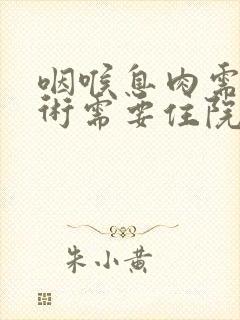 咽喉息肉需
术需要住院
朱小黄